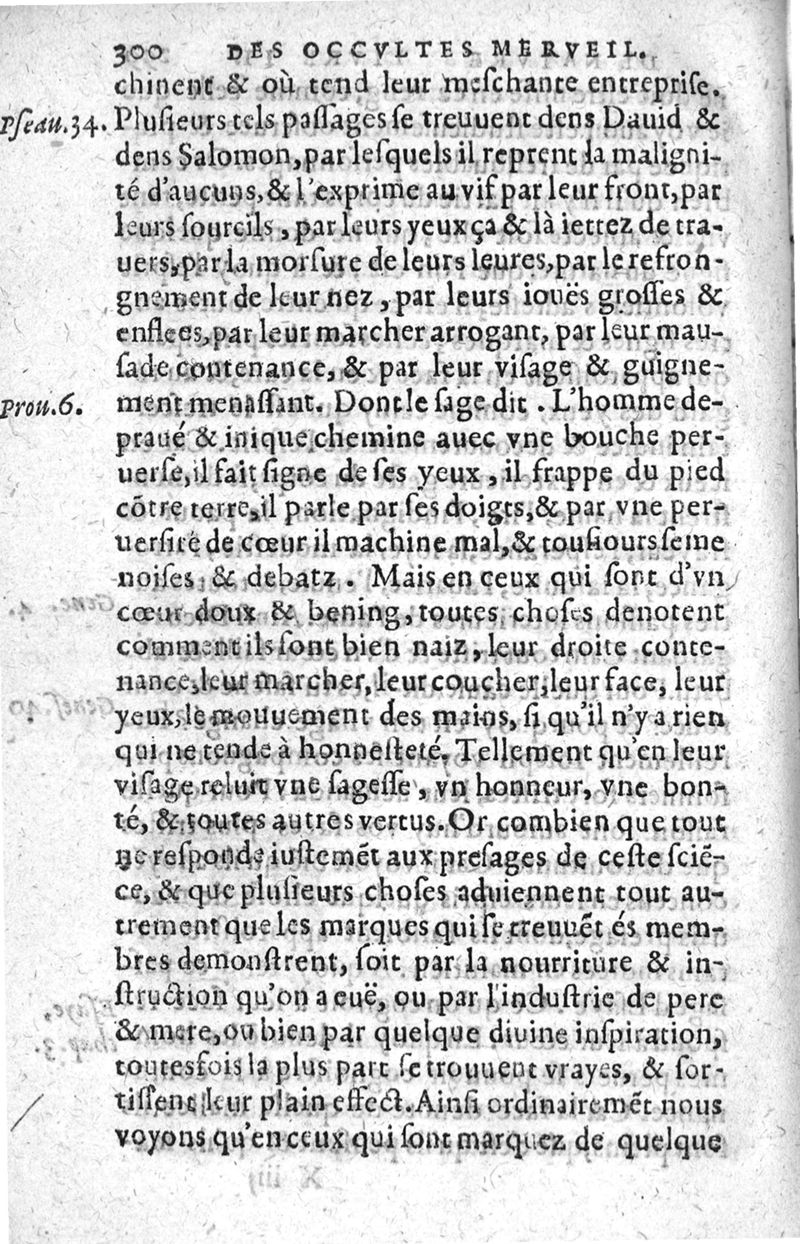 300 DES OCCVLTES MERVEIL.
chinent & où tend leur meſchante entrepriſe.
Pſeau.34. Pluſieurs tels paſſages ſe treuuent dens Dauid &
dens Salomon, par leſquels il reprent la maligni-
té d'aucuns, & l'exprime au vif par leur front, par
leurs ſourcils, par leurs yeux ça & là iettez de tra-
uers, par la morſure de leurs leures, par le refron-
gnement de leur nez, par leurs iouës groſſes &
enflees, par leur marcher arrogant, par leur mau-
ſade contenance, & par leur viſage & guigne-
Prou.6. ment menaſſant. Dont le ſage dit. L'homme de-
praué & inique chemine auec vne bouche per-
uerſe, il fait ſigne de ſes yeux, il frappe du pied
cõtre terre, il parle par ſes doigts, & par vne per-
uerſité de cœur il machine mal, & touſiours ſeme
noiſes & debatz. Mais en ceux qui ſont d'vn
cœur doux & bening, toutes choſes denotent
comment ils ſont bien naiz, leur droite conte-
nance, leur marcher, leur coucher, leur face, leur
yeux, le mouuement des mains, ſi qu'il n'y a rien
qui ne tende à honneſteté. Tellement qu'en leur
viſage reluit vne ſageſſe, vn honneur, vne bon-
té, & toutes autres vertus. Or combien que tout
ne reſponde iuſtemẽt aux preſages de ceſte ſciẽ-
ce, & que pluſieurs choſes aduiennent tout au-
trement que les marques qui ſe treuuẽt és mem-
bres demonſtrent, ſoit par la nourriture & in-
ſtruction qu'on a euë, ou par l'induſtrie de pere
& mere, ou bien par quelque diuine inſpiration,
toutesfois la plus part ſe trouuent vrayes, & ſor-
tiſſent leur plain effect. Ainſi ordinairemẽt nous
voyons qu'en ceux qui ſont marquez de quelque